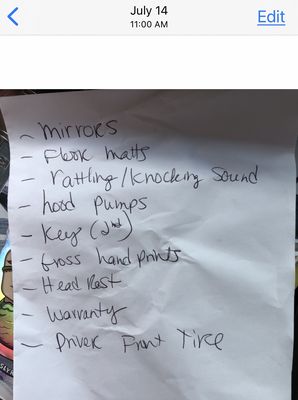 July 14
11:00 AM
Edit
- mirrors
- Floor matts
- rattling/knocking sound
- hood pumps
- Key (2nd)
- Gross hand prints
- Head Rest
- Warranty
- Driver Front Tire